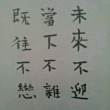 未來不迎
當下不雜
既往不戀